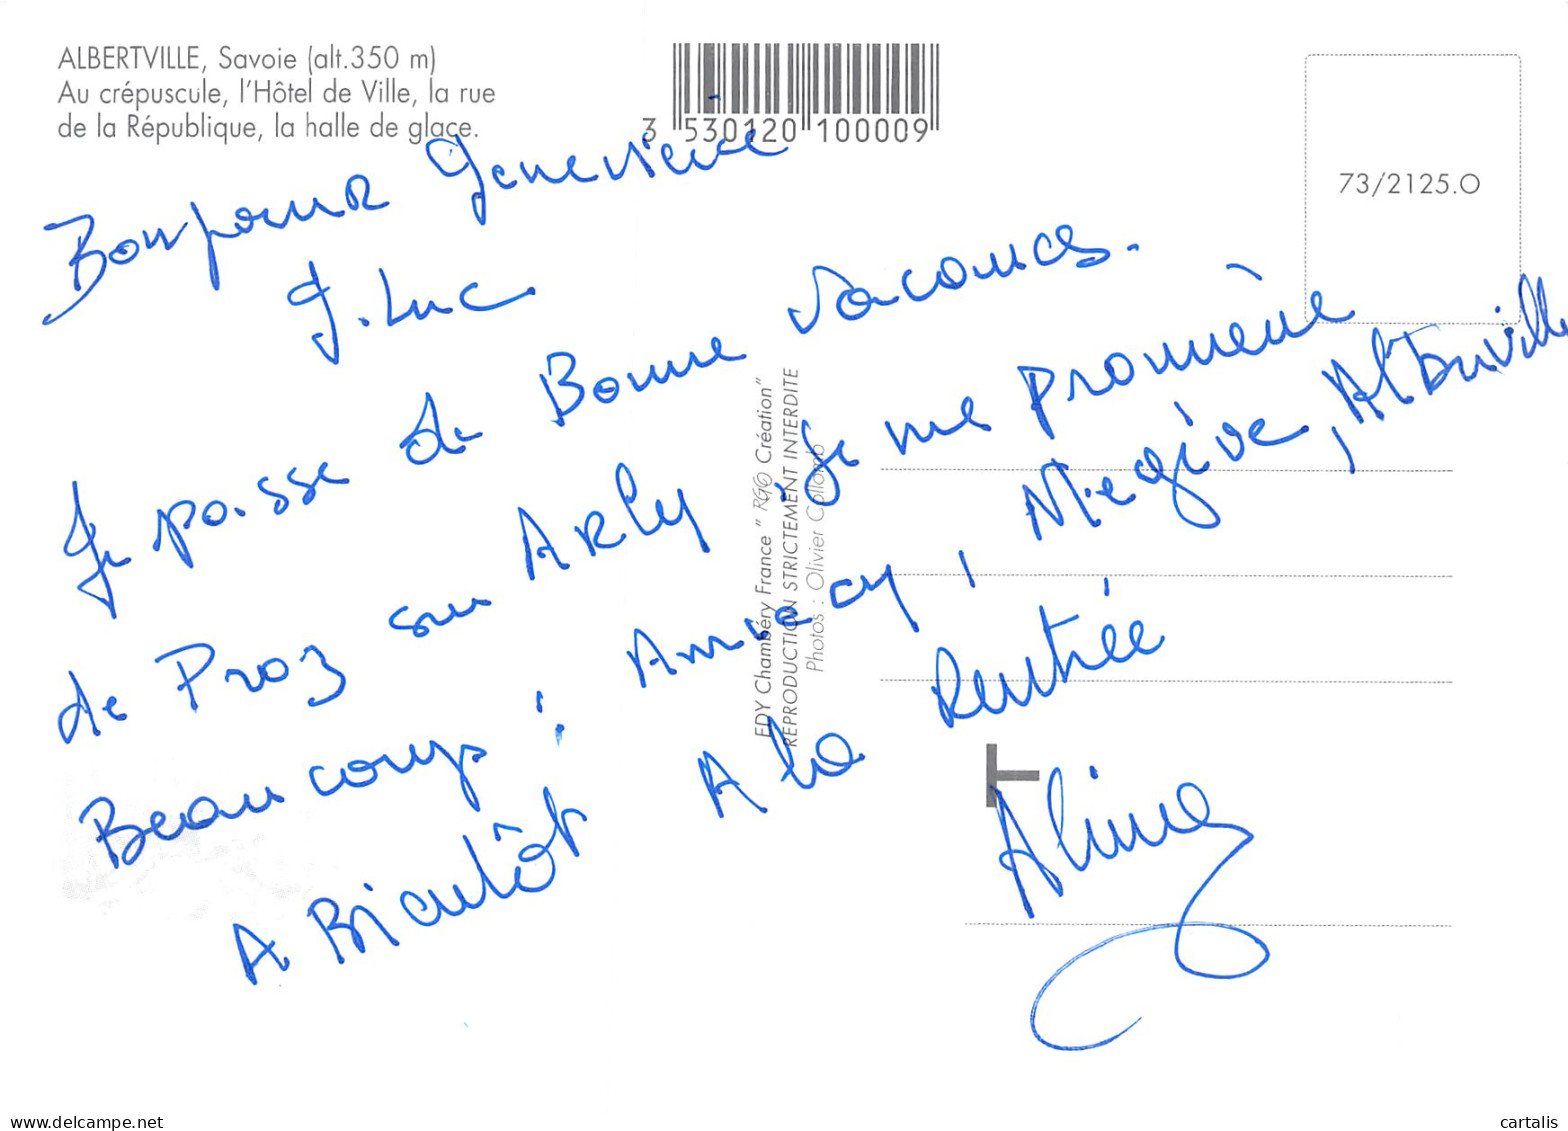 ALBERTVILLE, Savoie (alt.350 m)
Au crépuscule, l'Hôtel de Ville, la rue
de la République, la halle de glace.
3 530120 100009
73/2125.O
Bonjour Genevieve
J. Luc
Je passe de Bonne vacances.
de Praz sur Arly je me promène
Beaucoup : Annecy, Megève, Albertville
A Bientôt A la Rentrée
Aline
EDY Chambéry France "RGO Création"
REPRODUCTION STRICTEMENT INTERDITE
Photos : Olivier Collomb
T
© cartalis
www.delcampe.net